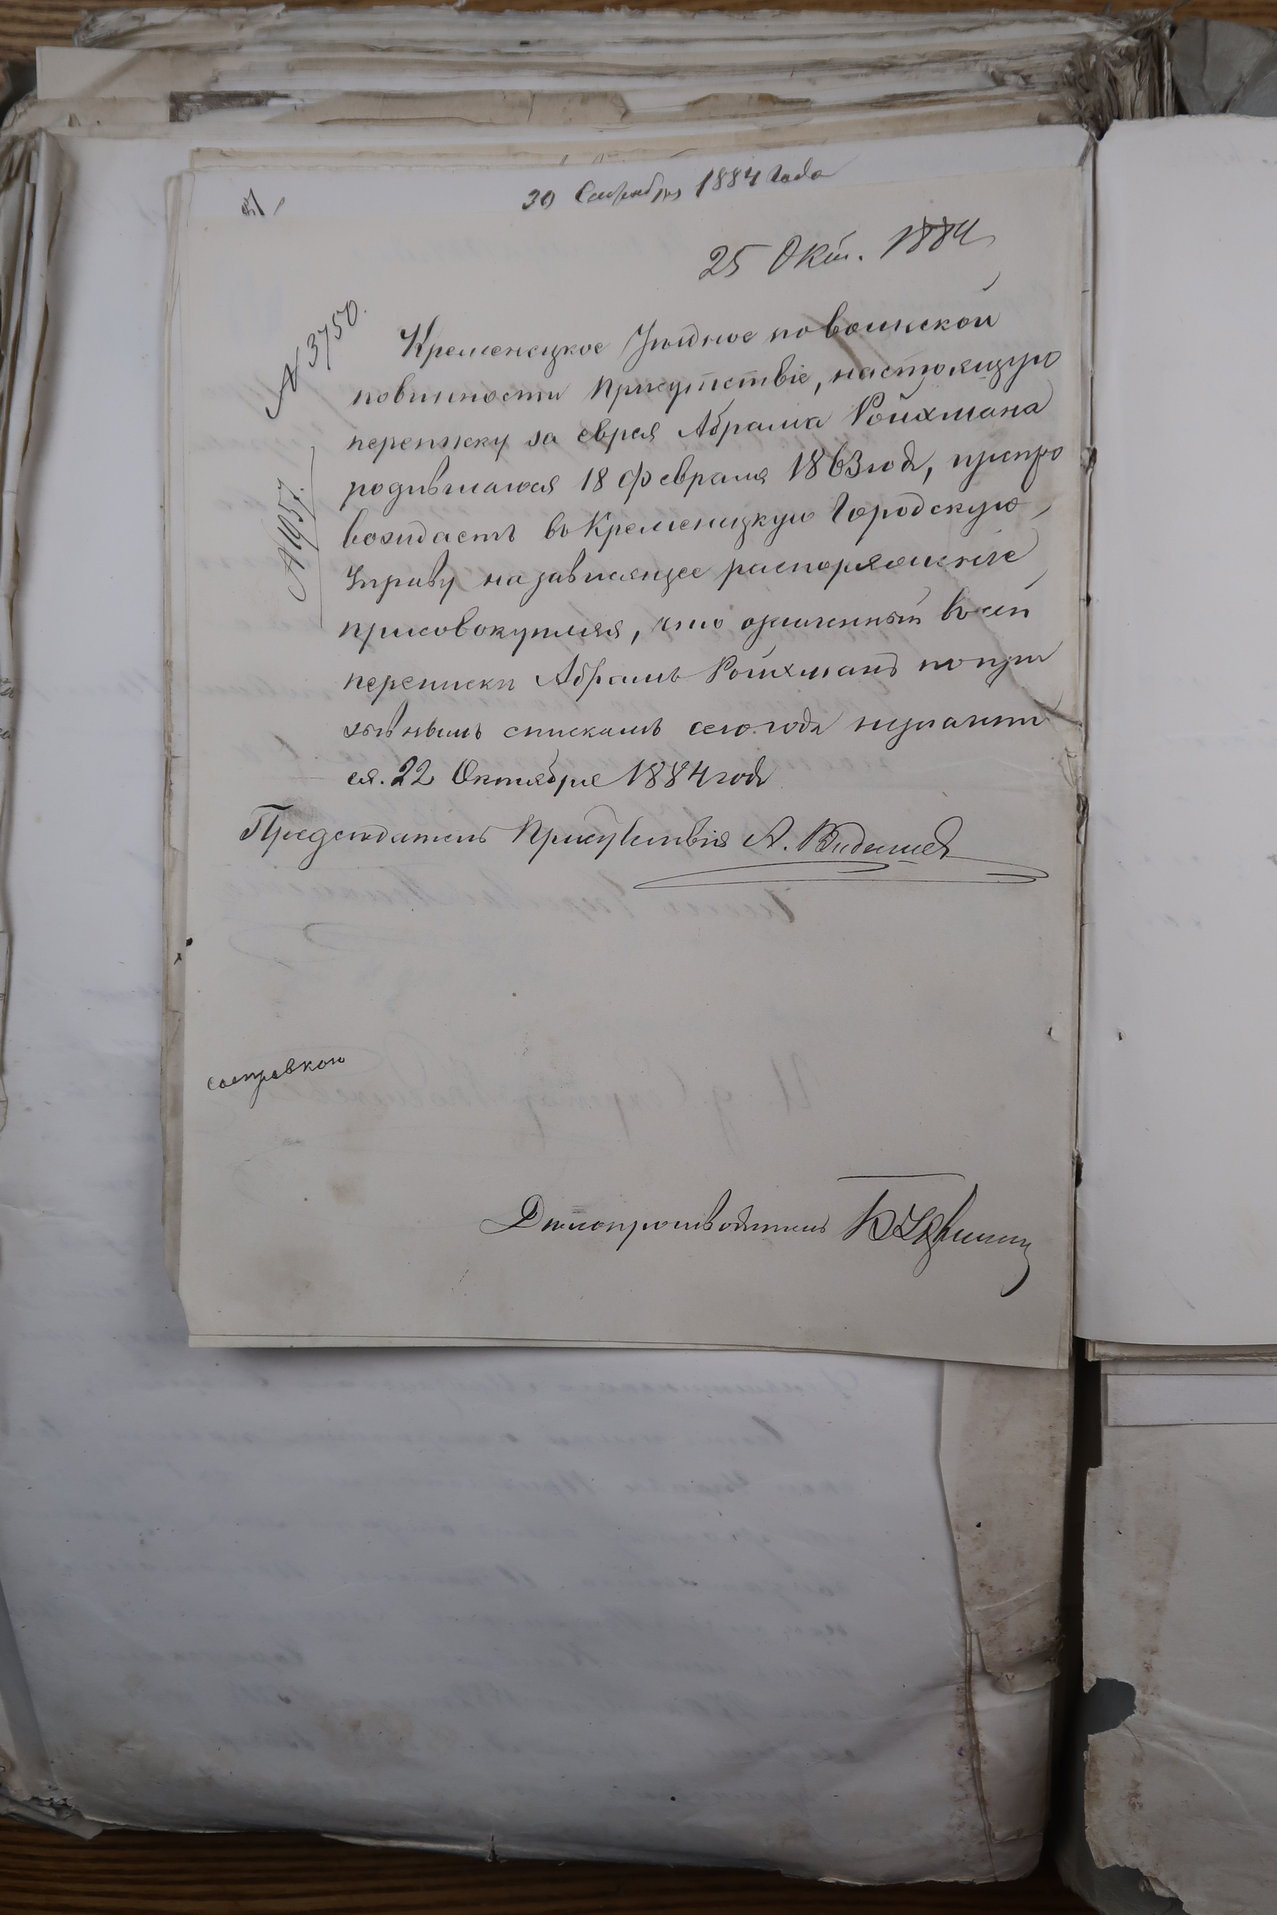 30 Сентября 1884 года
25 Окт. 1884
№ 3750.
№ 1957.
Кременецкое Уездное по воинской
повинности Присутствіе, настоящую
переписку за еврея Абрама Ройхмана
родившагося 18 Февраля 1863 года, препро
вождаетъ въ Кременецкую Городскую
Управу на зависящее распоряженіе
присовокупляя, что означенный в сей
переписки Абрамъ Ройхманъ по при
зывнымъ спискамъ сего года незначит
ся. 22 Октября 1884 года
Председатель Присутствія А.
Делопроизводитель